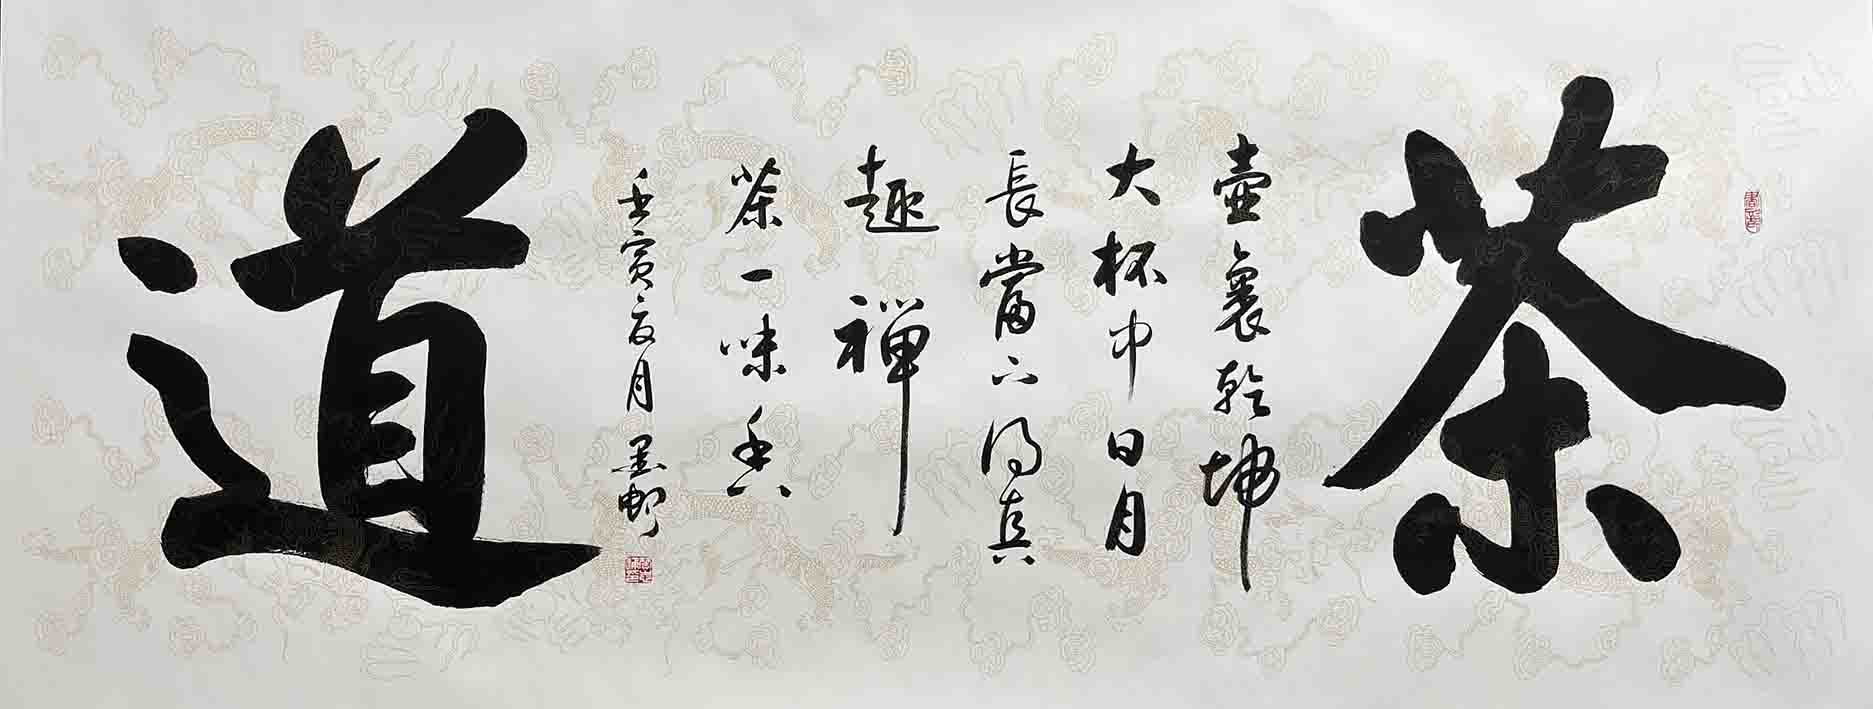 茶
壺裏乾坤
大杯中日月
長當下得真
趣禪
茶一味香
壬寅夏月墨邨
道